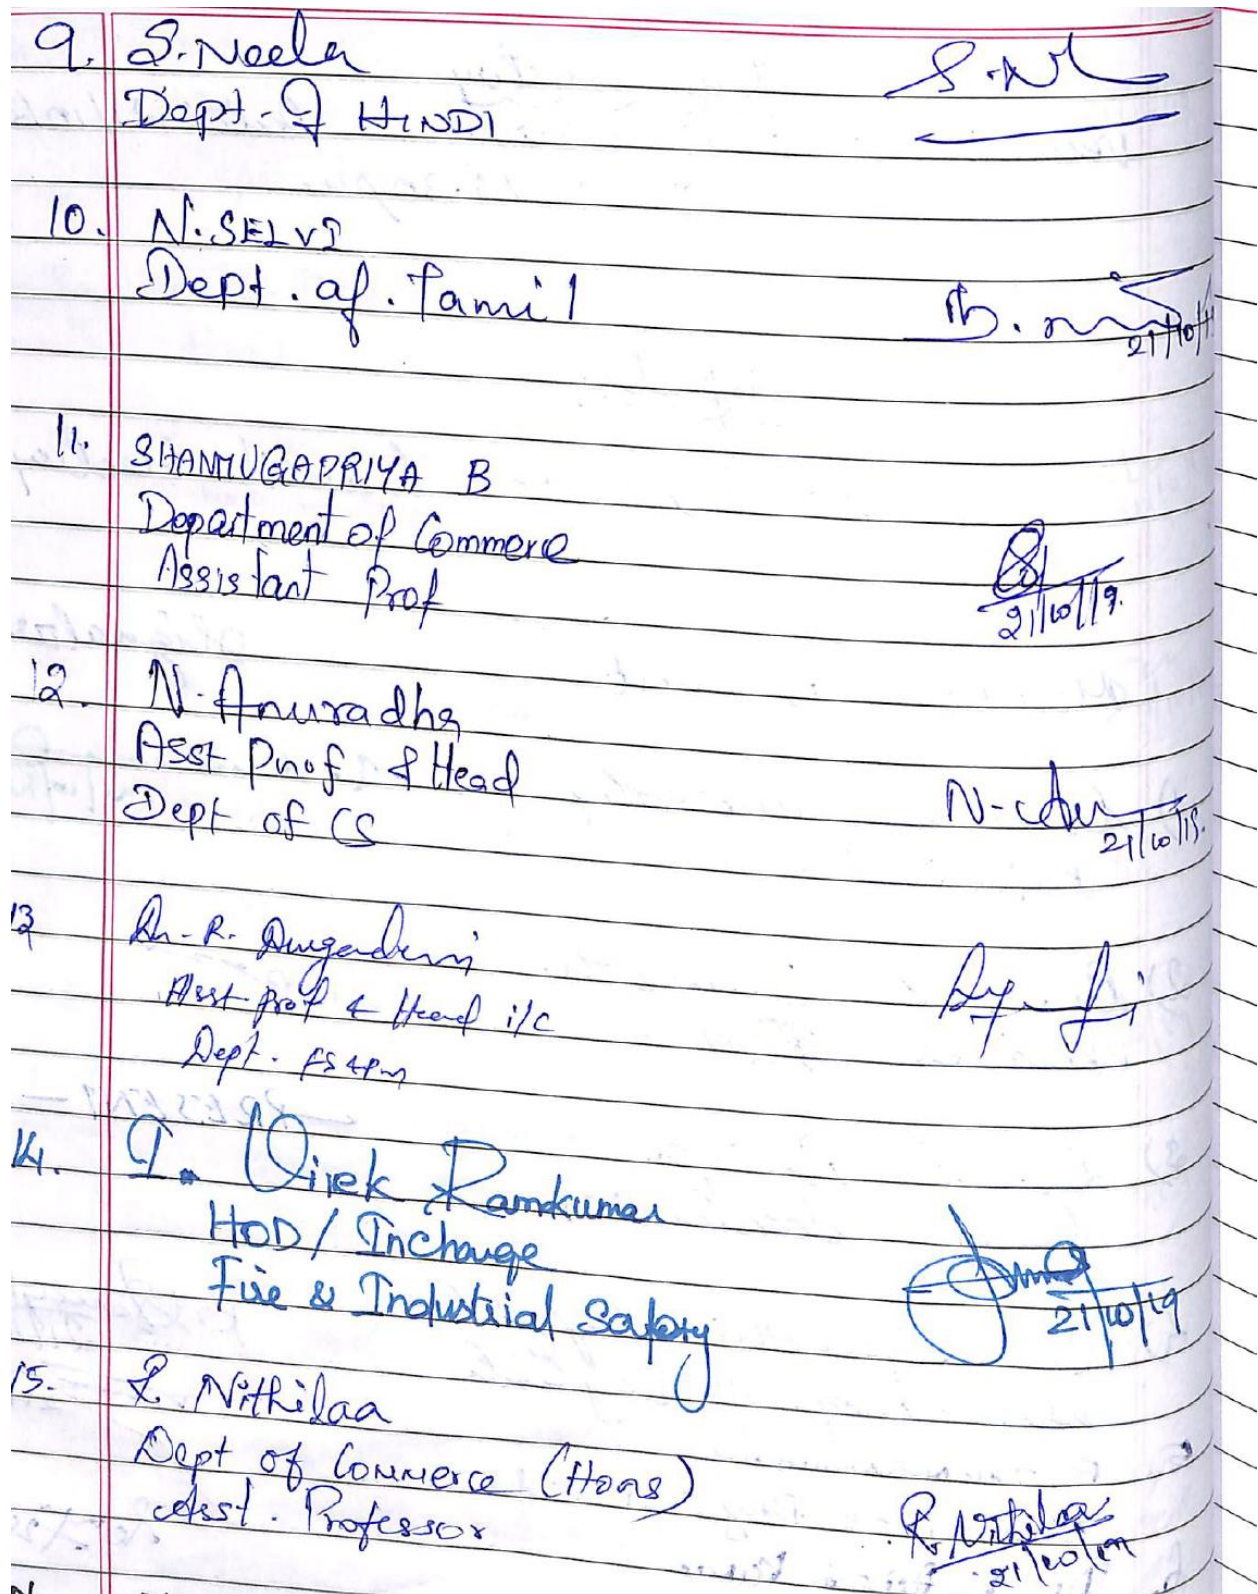 9. S. Neela
Dept. of HINDI
10. N. SELVI
Dept. of. Tamil
21/10/19
11. SHANMUGAPRIYA B
Department of Commerce
Assistant Prof
21/10/19.
12. N. Anuradha
Asst Prof & Head
Dept of CS
21/10/19.
13 Dr. R. Durgadevi
Asst. prof & Head i/c
Dept.
14. I. Vivek Ramkumar
HOD / Incharge
Fire & Industrial Safety
21/10/19
15. R. Nithilaa
Dept of Commerce (Hons)
Asst. Professor
R. Nithilaa
21/10/19